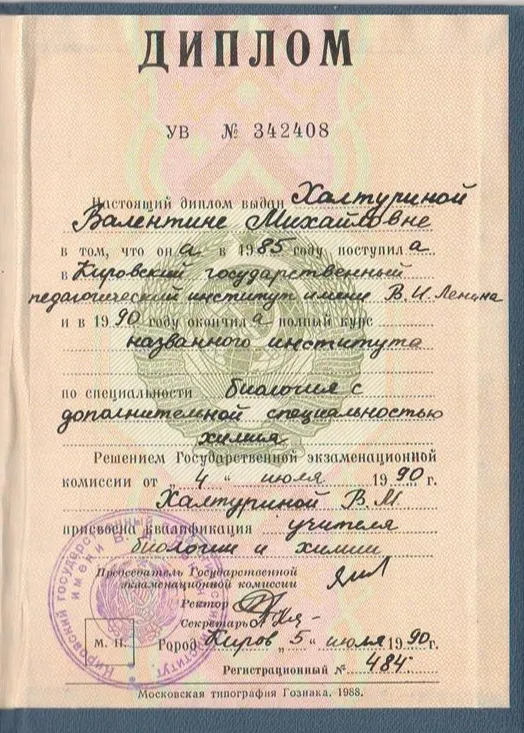 ДИПЛОМ
УВ № 342408
Настоящий диплом выдан Халтуриной
Валентине Михайловне
в том, что она в 1985 году поступила
в Кировский государственный
педагогический институт имени В.И. Ленина
и в 1990 году окончила полный курс
названного института
по специальности биология с
дополнительной специальностью
химия
Решением Государственной экзаменационной
комиссии от „4“ июля 1990 г.
Халтуриной В.М
присвоена квалификация учителя
биологии и химии
Председатель Государственной
экзаменационной комиссии
Ректор
Секретарь
М. П.
Город Киров „5“ июля 1990 г.
Регистрационный № 484
Московская типография Гознака. 1988.